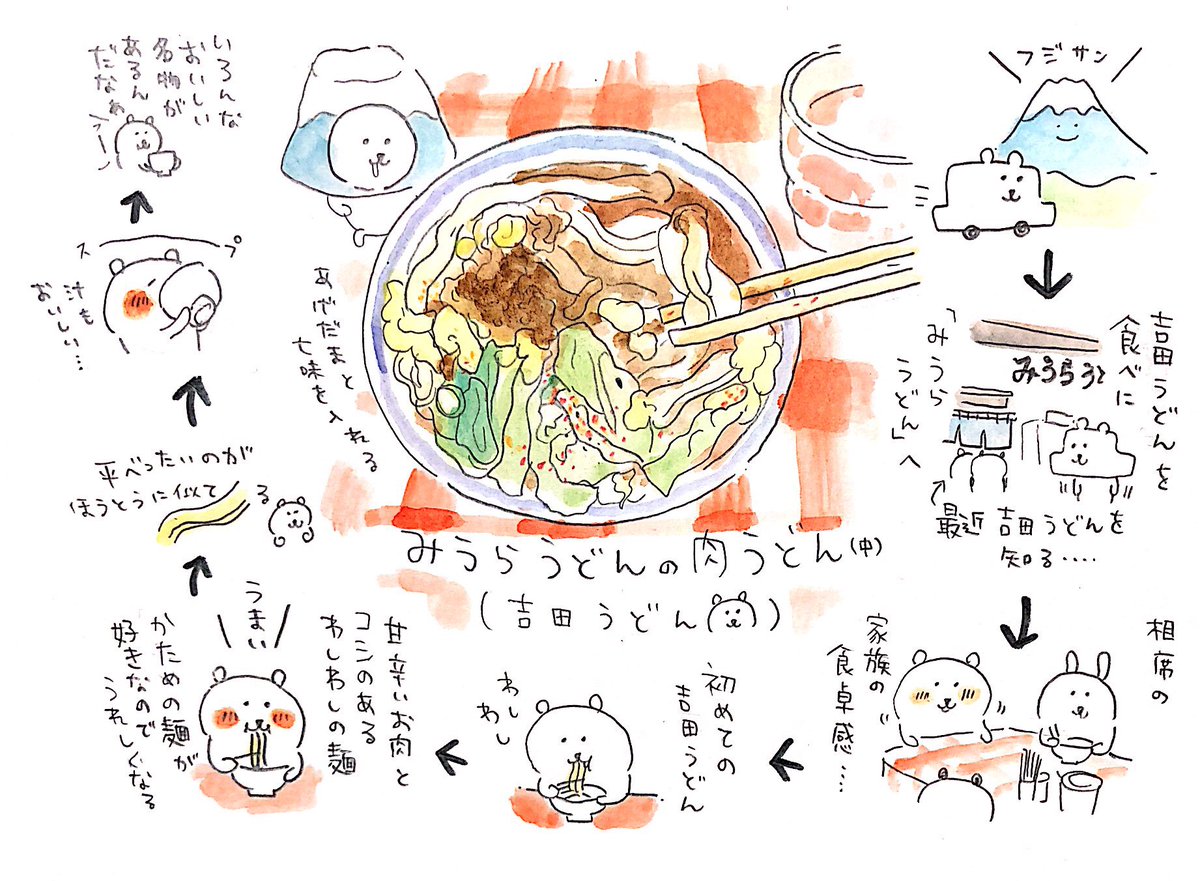 フジサン
吉田うどんを
食べに
「みうら
うどん」へ
みうらうど
最近吉田うどんを
知る‥‥
相席の
家族の
食卓感…
初めての
吉田うどん
わし
わし
甘辛いお肉と
コシのある
わしわしの麺
うまい
かための麺が
好きなので
うれしくなる
平べったいのが
ほうとうに似てる
スープ
汁も
おいしい…
いろんな
おいしい
名物が
あるん
だなぁ
あげだまと
七味を入れる
みうらうどんの肉うどん(中)
(吉田うどん)